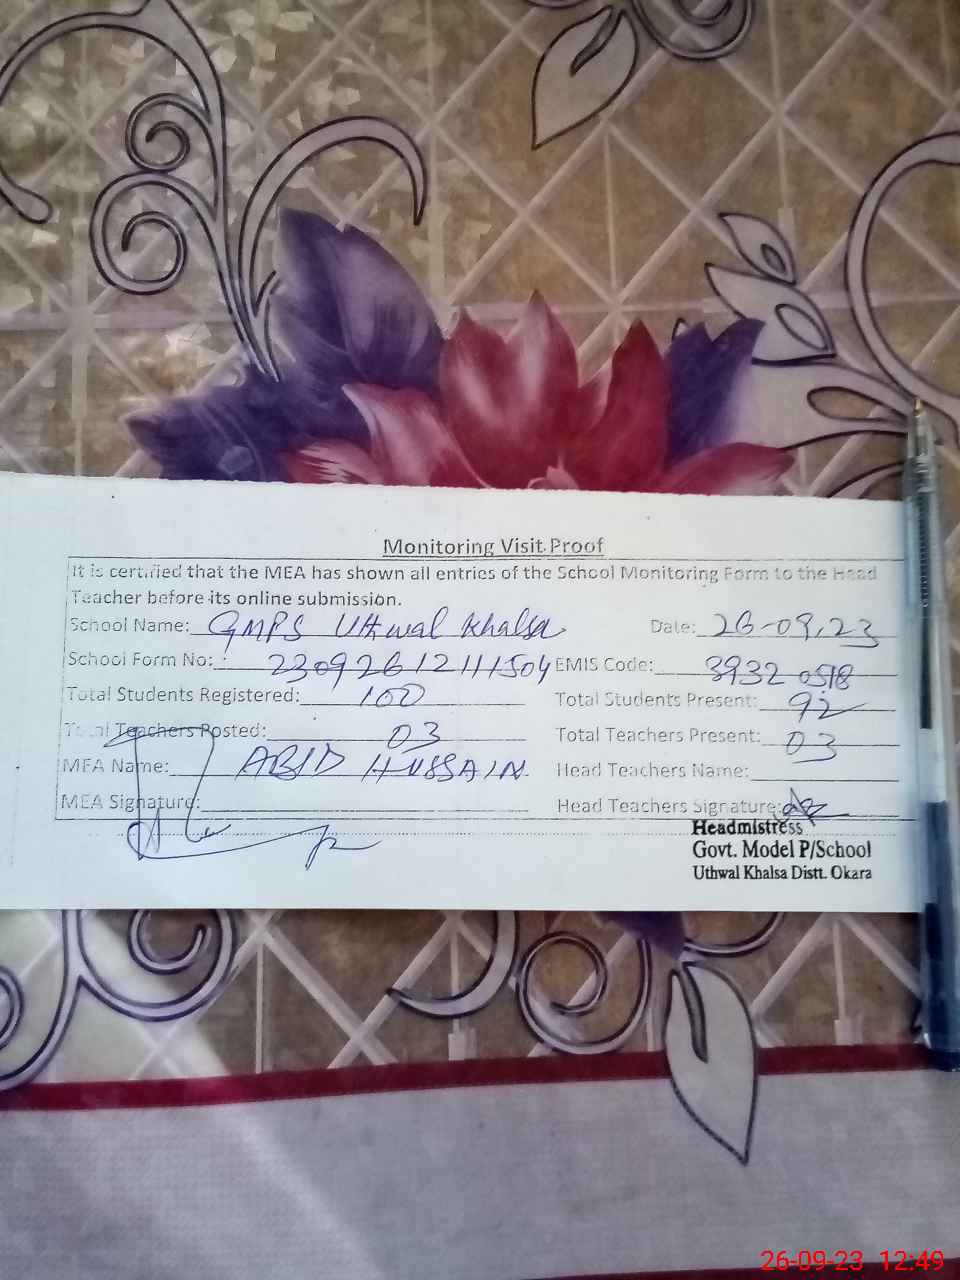 Monitoring Visit Proof
It is certified that the MEA has shown all entries of the School Monitoring Form to the Head
Teacher before its online submission.
School Name: GMPS Uthwal Khalsa Date: 26-09.23
School Form No: 23092612111504 EMIS Code: 3932 0518
Total Students Registered: 100 Total Students Present: 92
Total Teachers Posted: 03 Total Teachers Present: 03
MEA Name: ABID HUSSAIN Head Teachers Name:
MEA Signature: Head Teachers Signature:
Headmistress
Govt. Model P/School
Uthwal Khalsa Distt. Okara
26-09-23 12:49